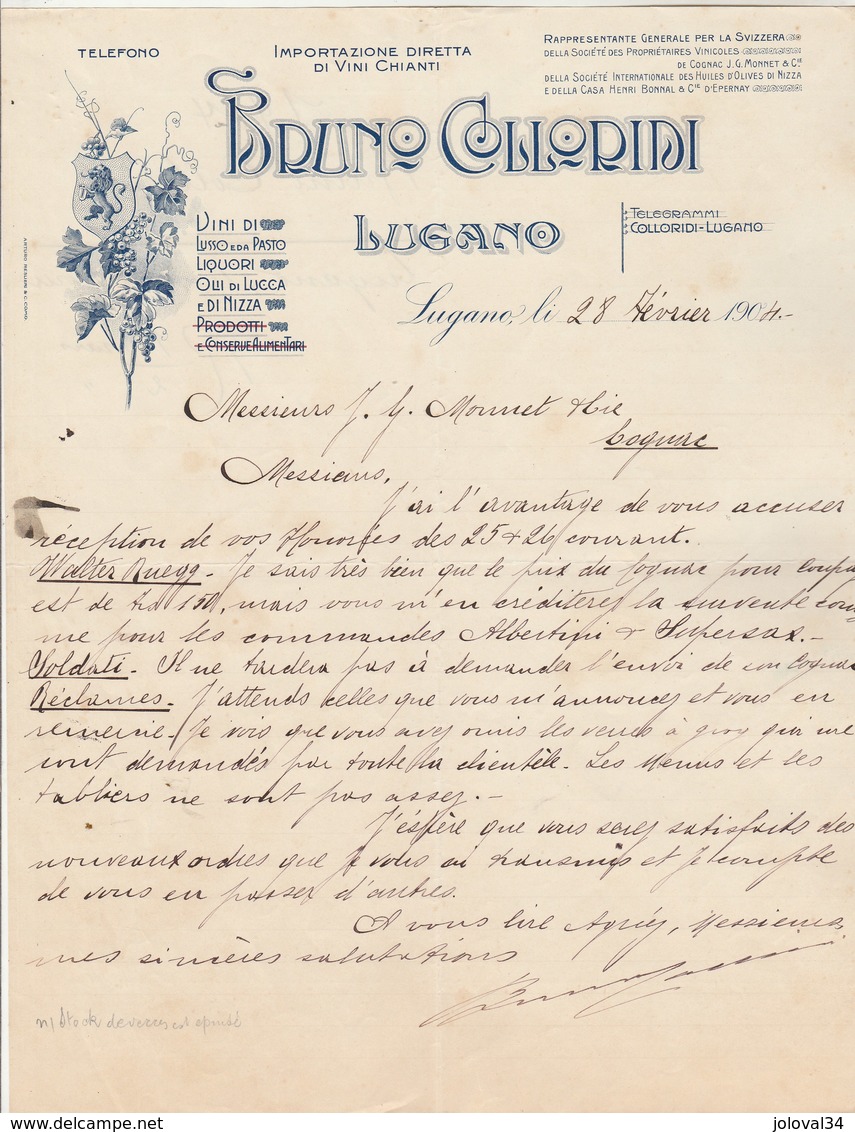 TELEFONO
IMPORTAZIONE DIRETTA
DI VINI CHIANTI
RAPPRESENTANTE GENERALE PER LA SVIZZERA
DELLA SOCIÉTÉ DES PROPRIÉTAIRES VINICOLES
DE COGNAC J.G. MONNET & Cie
DELLA SOCIÉTÉ INTERNATIONALE DES HUILES D'OLIVES DI NIZZA
E DELLA CASA HENRI BONNAL & Cie D'ÉPERNAY
BRUNO COLLORIDI
LUGANO
TELEGRAMMI
COLLORIDI-LUGANO
VINI DI
LUSSO E DA PASTO
LIQUORI
OLII DI LUCCA
E DI NIZZA
PRODOTTI
E CONSERVE ALIMENTARI
Lugano, li 28 Février 1904.-
Messieurs J. G. Monnet & Cie
Cognac
Messieurs,
J'ai l'avantage de vous accuser
réception de vos Honorées des 25 & 26 courant.
Walter Ruegg.- Je sais très bien que le prix du Cognac pour coupa
est de frs 150, mais vous m'en créditerez la survente com
me pour les commandes Albertini & Supersax.-
Soldati.- Il ne tardera pas à demander l'envoi de son Cognac
Réclames.- J'attends celles que vous m'annoncez et vous en
remercie.- Je vois que vous avez omis les verres à grog qui me
sont demandés par toute la clientèle.- Les Menus et les
tabliers ne sont pas assez.-
J'espère que vous serez satisfaits des
nouveaux ordres que je vous ai transmis et je compte
de vous en passer d'autres.
A vous lire Agréez, Messieurs,
mes sincères salutations
n/ Stock de verres est épuisé
www.delcampe.net
joloval34